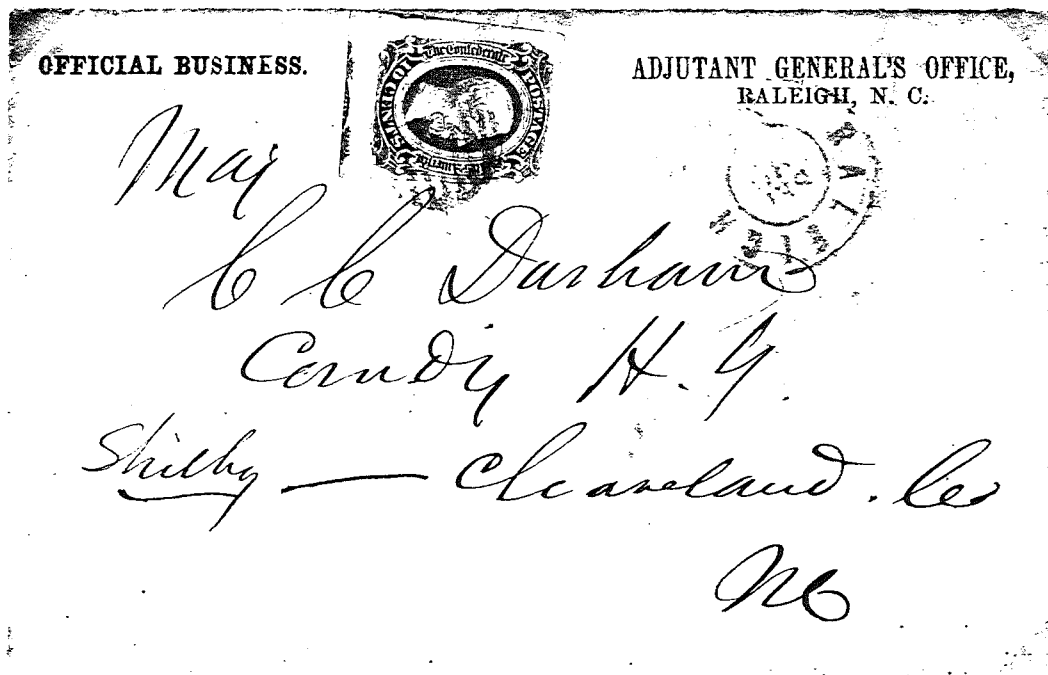 OFFICIAL BUSINESS.
The Confederate
POSTAGE
ADJUTANT GENERAL'S OFFICE,
RALEIGH, N. C.
Maj
C C Durham
Comdg H. G.
Shilby — Cleaveland. Co
NC